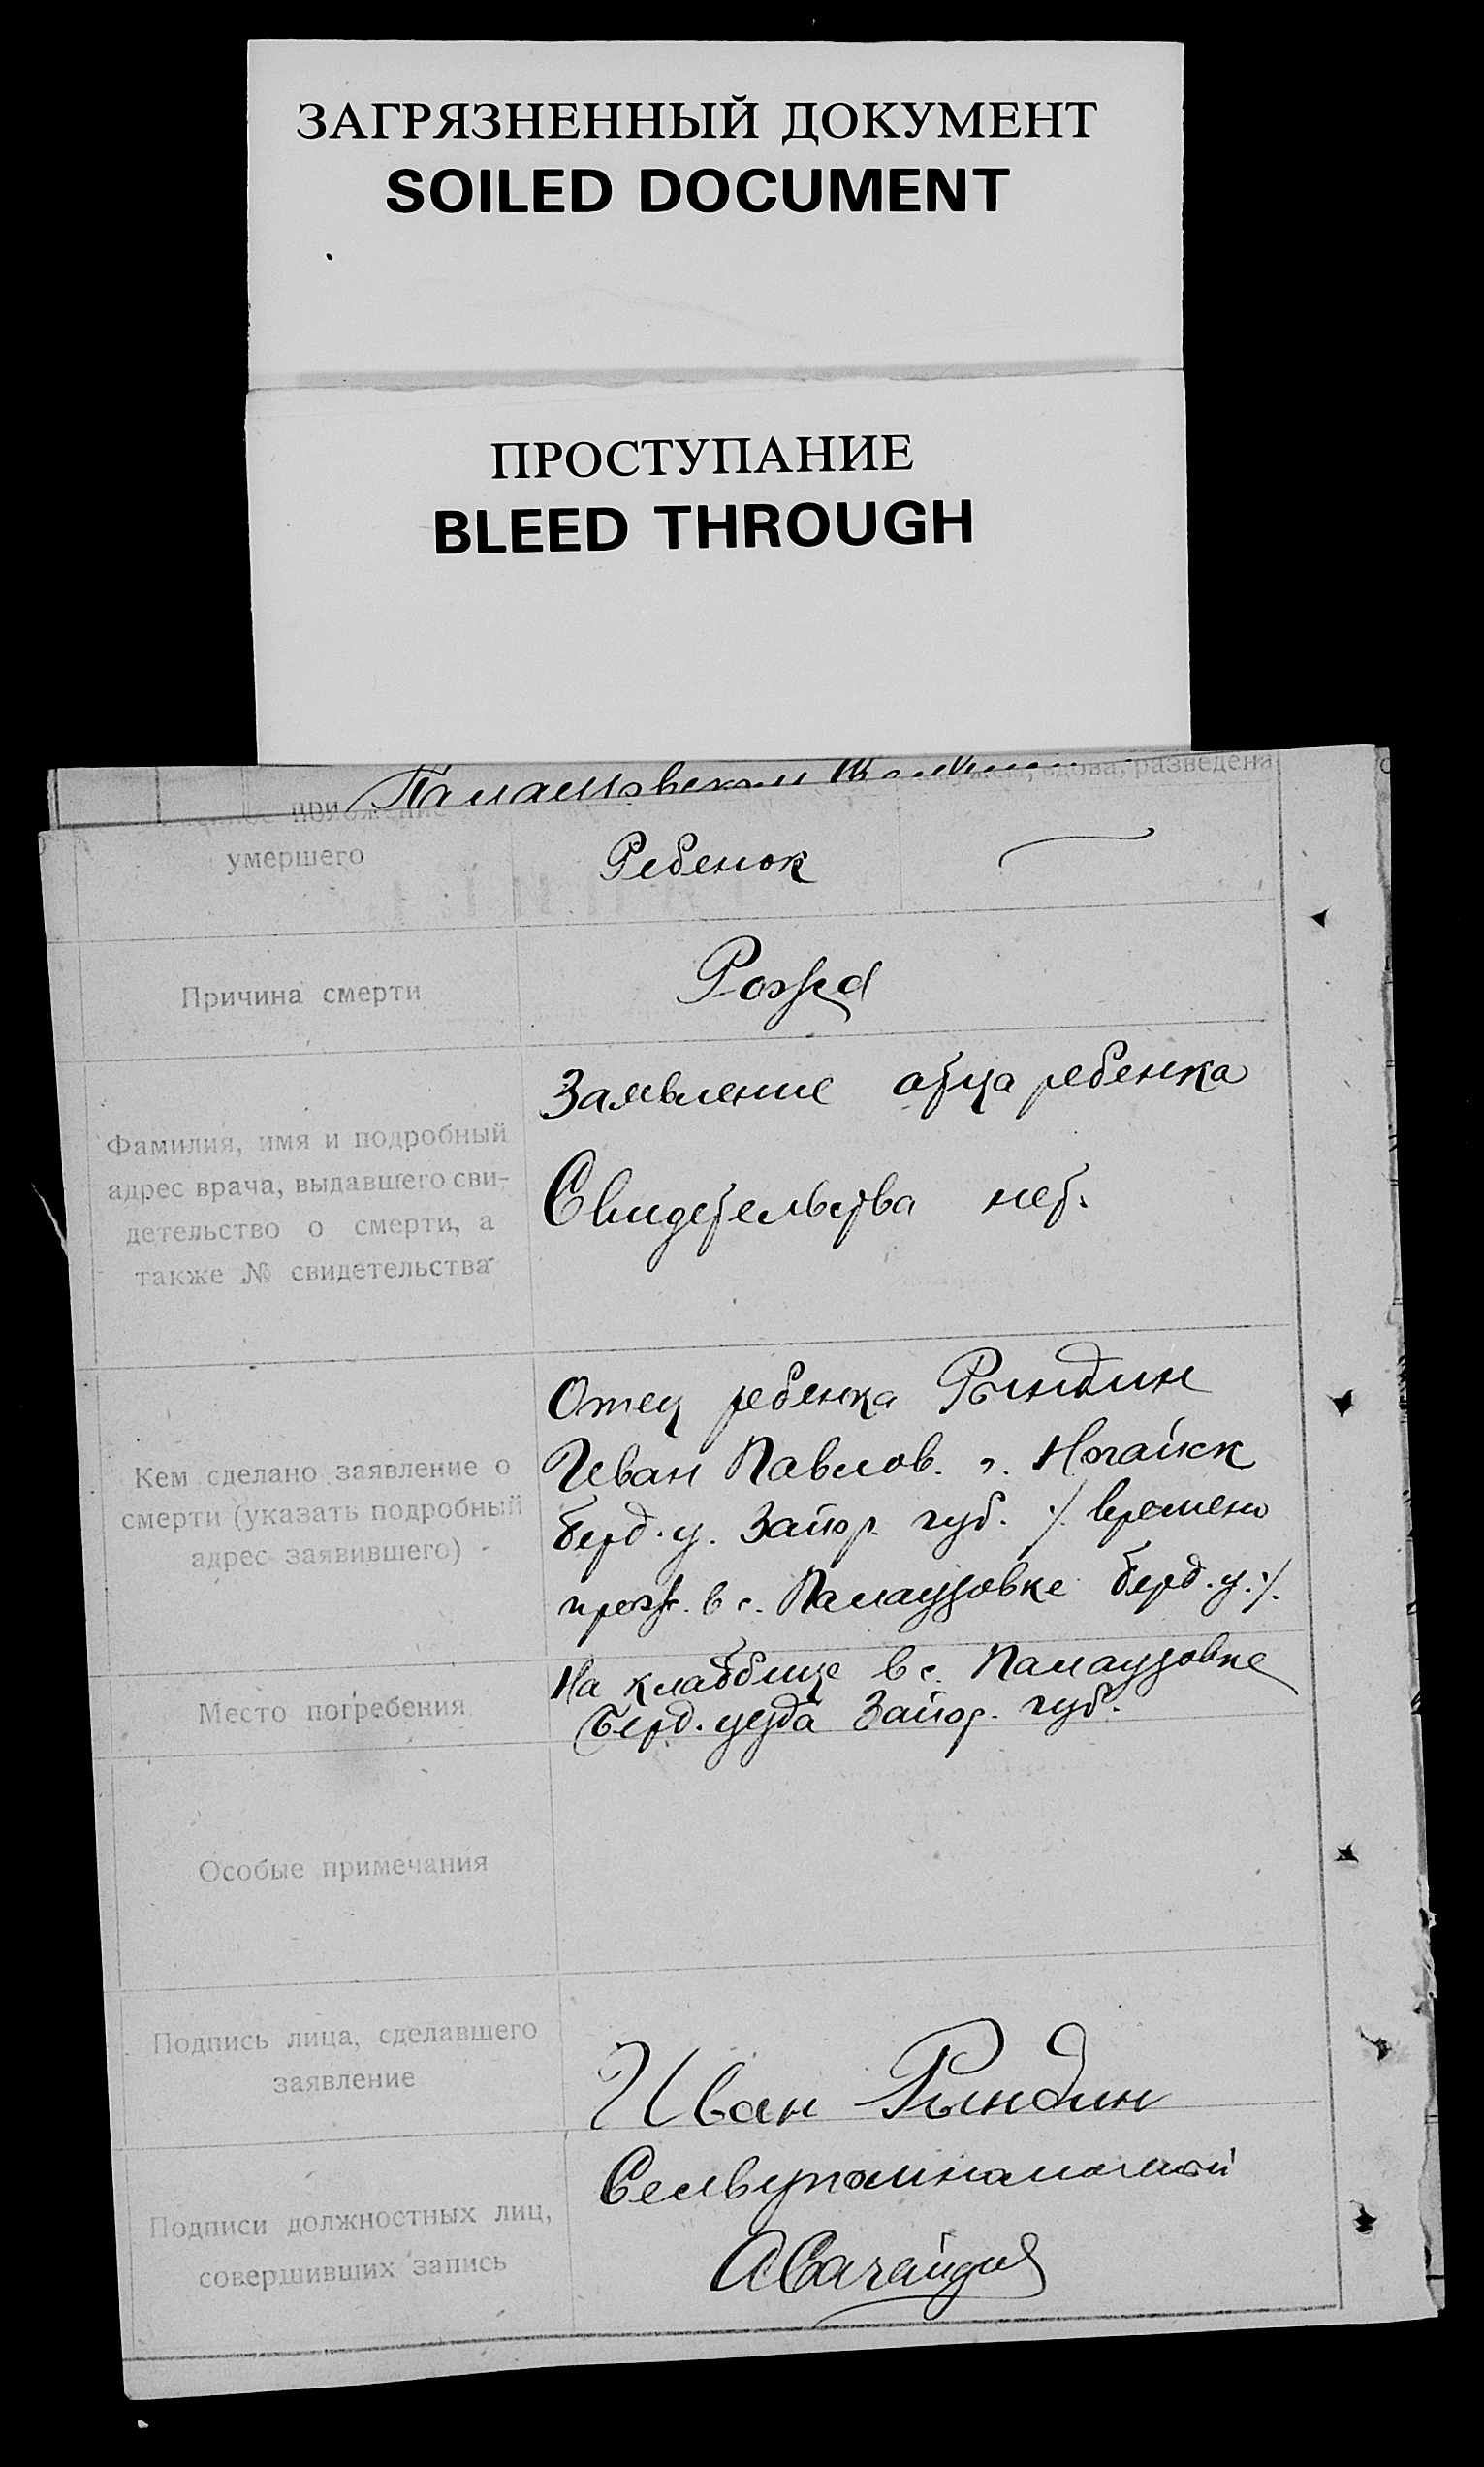 ЗАГРЯЗНЕННЫЙ ДОКУМЕНТ
SOILED DOCUMENT
ПРОСТУПАНИЕ
BLEED THROUGH
вдова, разведена
умершего
Ребенок
Причина смерти
Фамилия, имя и подробный
адрес врача, выдавшего сви-
детельство о смерти, а
также № свидетельства
Заявление отца ребенка
Свидетельства нет.
Кем сделано заявление о
смерти (указать подробный
адрес заявившего)
Отец ребенка Рындин
Иван Павлов. г. Ногайск
Берд. у. Запор. губ. /. времено
прож. в с. Палаузовке Берд. у. /.
Место погребения
На кладбище в с. Палаузовке
Берд. уезда Запор. губ.
Особые примечания
Подпись лица, сделавшего
заявление
Иван Рындин
Подписи должностных лиц,
совершивших запись